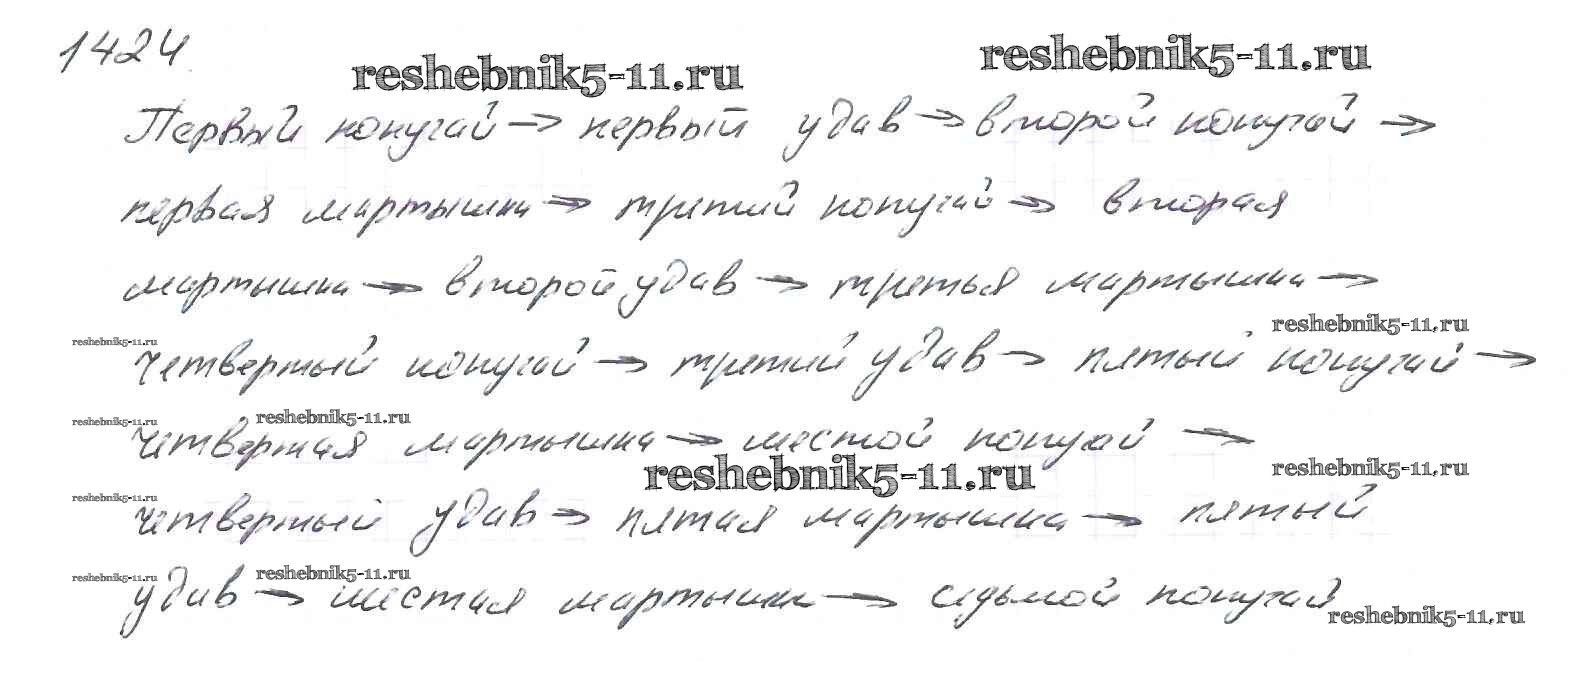 1424
reshebnik5-11.ru
reshebnik5-11.ru
Первый попугай → первый удав → второй попугай →
первая мартышка → третий попугай → вторая
мартышка → второй удав → третья мартышка →
reshebnik5-11.ru
reshebnik5-11.ru
четвертый попугай → третий удав → пятый попугай →
reshebnik5-11.ru
reshebnik5-11.ru
четвертая мартышка → шестой попугай →
reshebnik5-11.ru
reshebnik5-11.ru
reshebnik5-11.ru
четвертый удав → пятая мартышка → пятый
reshebnik5-11.ru
reshebnik5-11.ru
удав → шестая мартышка → седьмой попугай
reshebnik5-11.ru